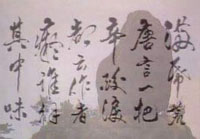 滿紙荒
唐言一把
辛酸淚
都云作者
癡誰解
其中味